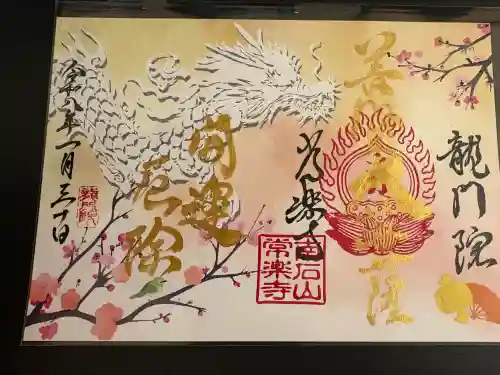 龍門院
常楽寺
開運
厄除
石山
常楽寺
令和八年一月三十日
龍門院